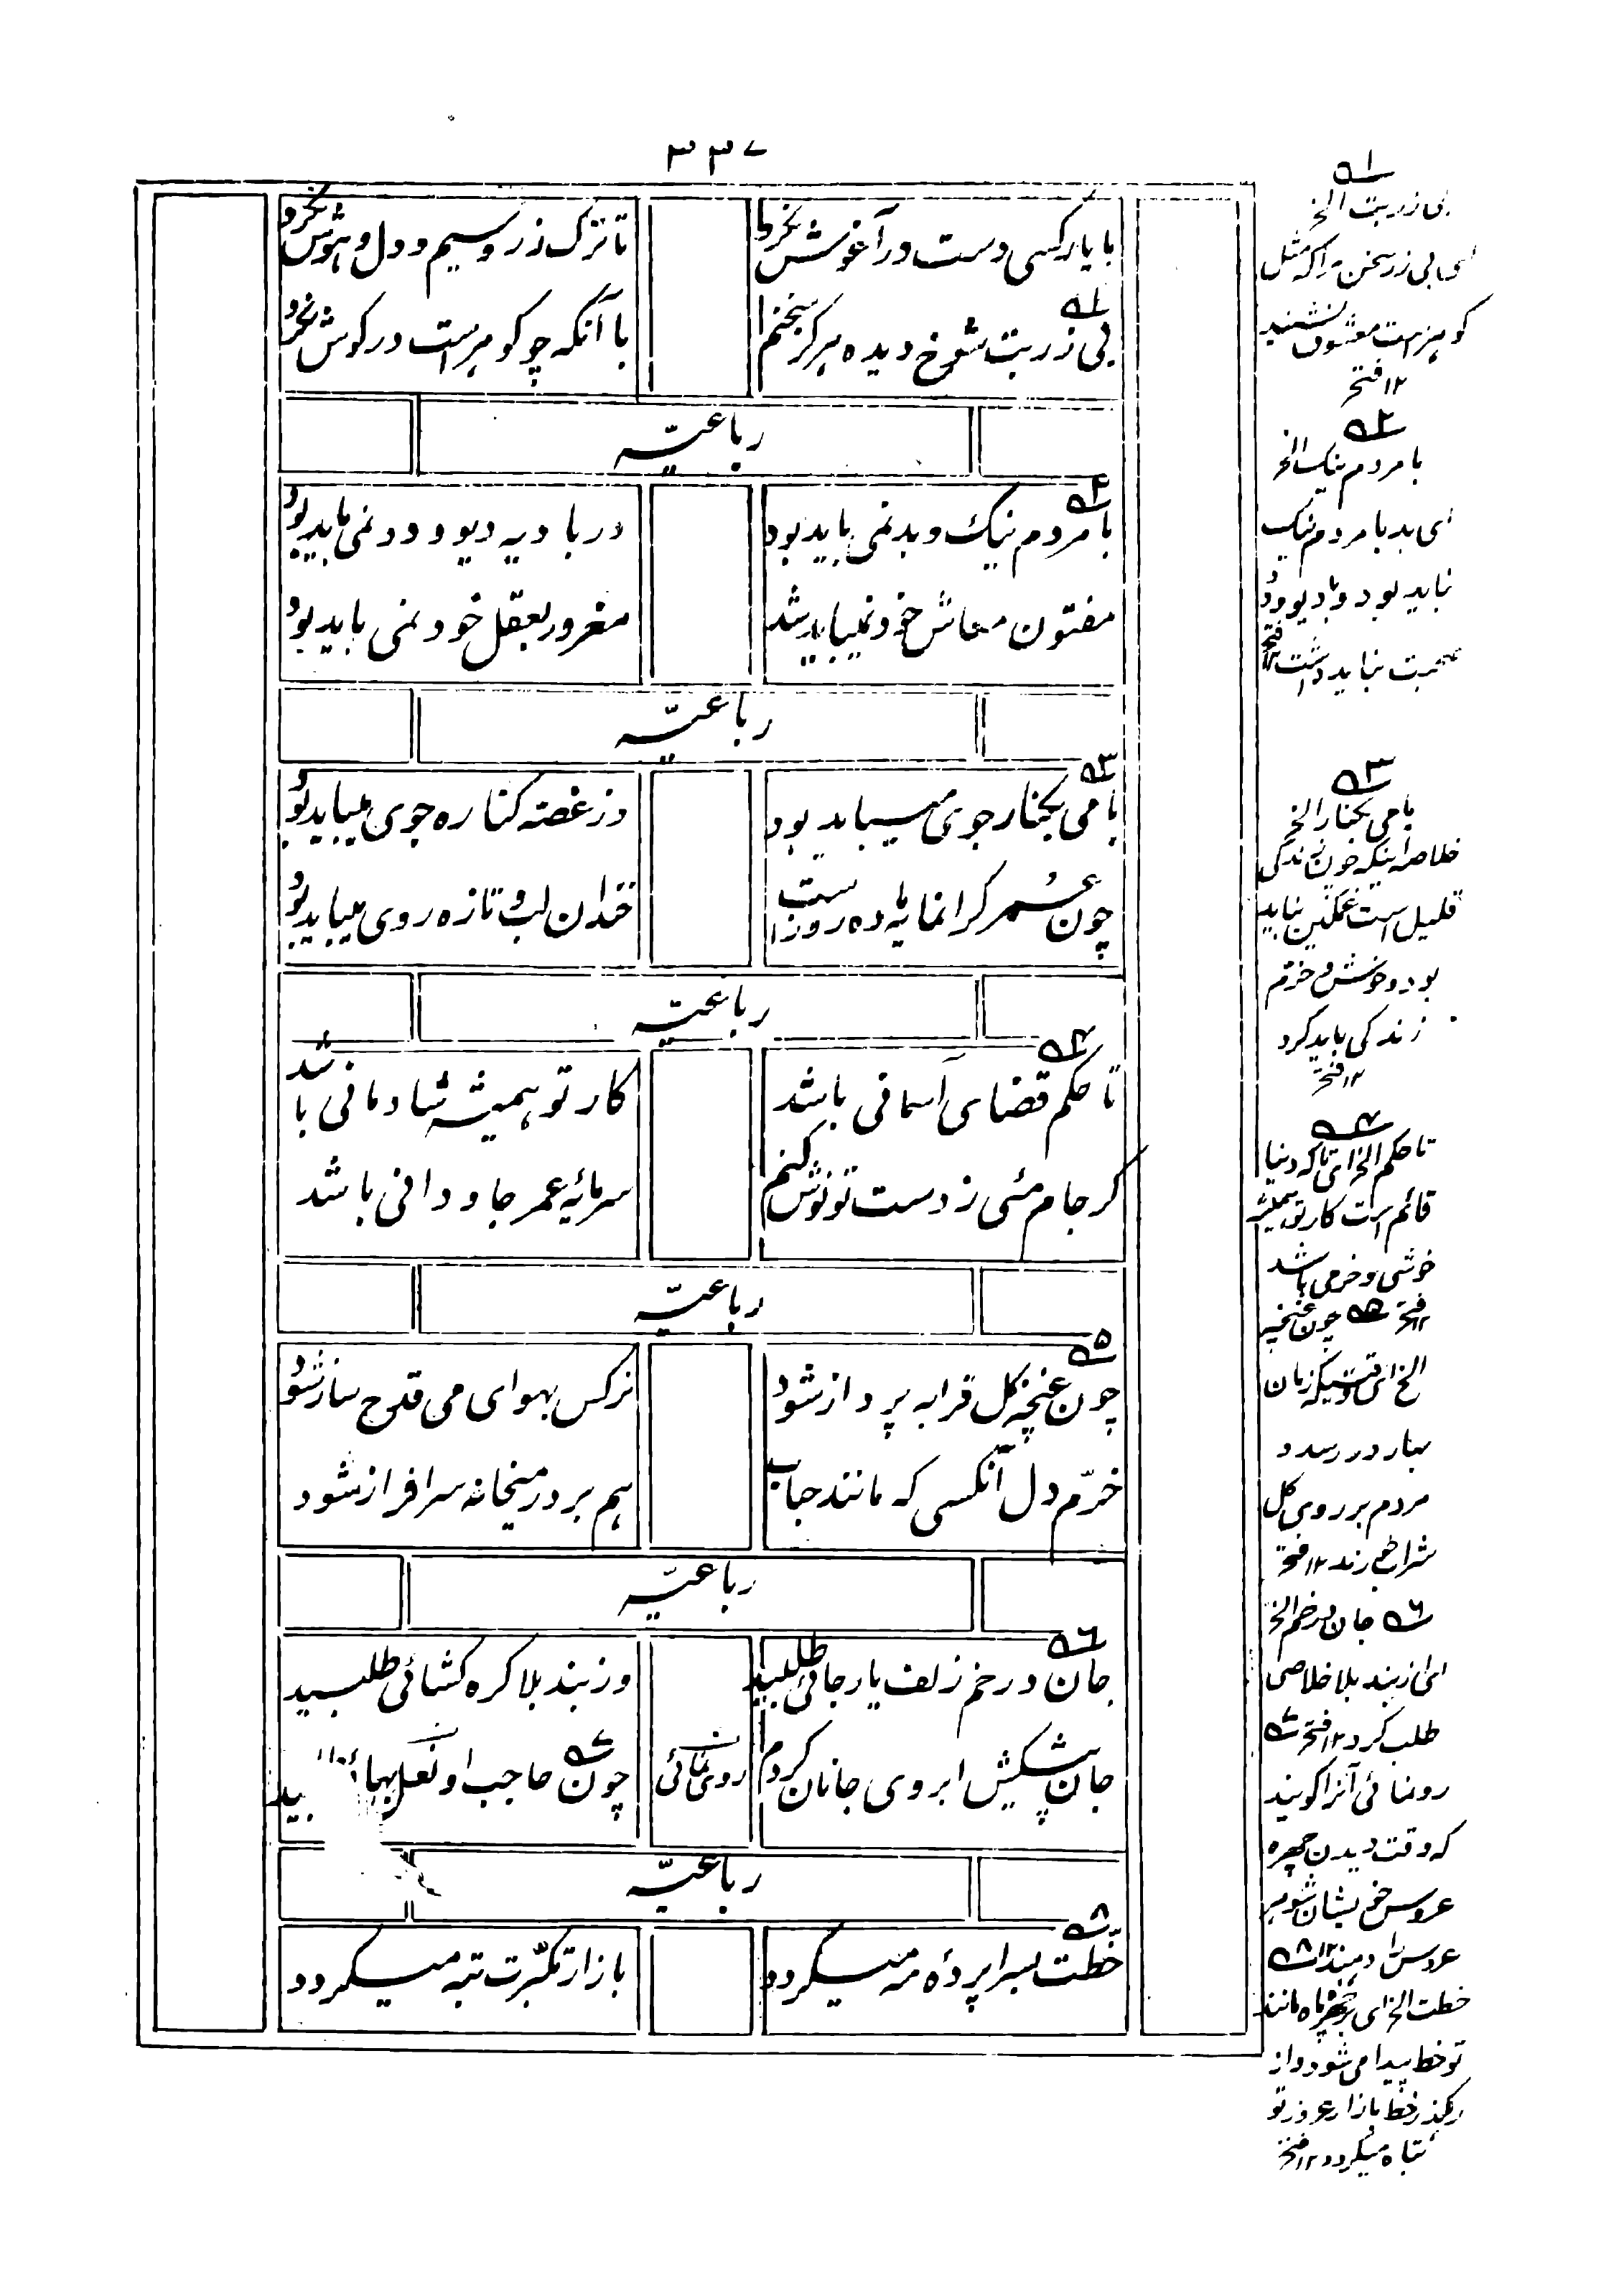 ۳۳۷
با یار کسی دست در آغوش نکرد
تا ترک زر و سیم و دل و هوش نکرد
۱
بی زر بت شوخ دیده هرگز سخنم
با آنکه چو گوهر است در گوش نکرد
رباعیّه
۲
با مردم نیک و بد نمی باید بود
در بادیه دیو و دد نمی باید بود
مفتون معاش خود نمیباید شد
مغرور بعقل خود نمی باید بود
رباعیّه
۳
با می بکنار جوی میباید بود
وز غصّه کناره جوی میباید بود
چون عمر گرانمایۀ ما ده روز است
خندان لب و تازه روی میباید بود
رباعیّه
۴
تا حکم قضای آسمانی باشد
کار تو همیشه شادمانی باشد
گر جام مئی ز دست تو نوش کنم
سرمایۀ عمر جاودانی باشد
رباعیّه
۵
چون غنچۀ گل قرابه پرداز شود
نرگس بهوای می قدح ساز شود
خرّم دل آنکسی که مانند حباب
هم بر در میخانه سرافراز شود
رباعیّه
۶
جان در خم زلف یار جائی طلبید
وز بند بلا گره گشائی طلبید
جان پیشکش ابروی جانان کردم
روی نمائی
۷
چون حاجب او نعل بها
رباعیّه
۸
خطت بسراپردۀ مه میگردد
بازار تکبّرت تبه میگردد
۱
بی زر بت الخ
ای بی زر سخن مرا که مثل
گوهر است معشوق نشنید
۱۲ فتح
۲
با مردم نیک الخ
ای بد با مردم نیک
نباید بود و با دیو و دد
صحبت نباید داشت ۱۲ فتح
۳
با می بکنار الخ
خلاصه اینکه چون زندگی
قلیل است غمگین نباید
بود و خوش و خرّم
زندگی باید کرد
۱۲ فتح
۴
تا حکم الخ ای تا که دنیا
قائم است کار تو همیشه
خوشی و خرمی باشد
۱۲ فتح ۵ چون غنچه
الخ ای وقتیکه زمان
بهار در رسد و
مردم بر روی گل
شراب زند ۱۲ فتح
۶ جان در خم الخ
ای از بند بلا خلاصی
طلب کرد ۱۲ فتح ۷
رونمائی آنرا گویند
که وقت دیدن چهره
عروس خویشان شوهر
عروس را دهند ۱۲ ۸
خطت الخ ای بر چهره ماه مانند
تو خط پیدا می شود و از
رهگذر خط بازار غرور تو
تباه میگردد ۱۲ فتح